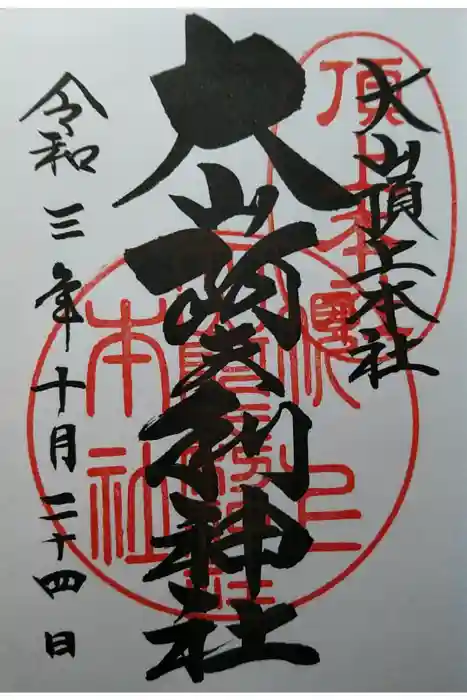 大山頂上本社
大山阿夫利神社
令和三年十月二十四日
頂上本社
本社